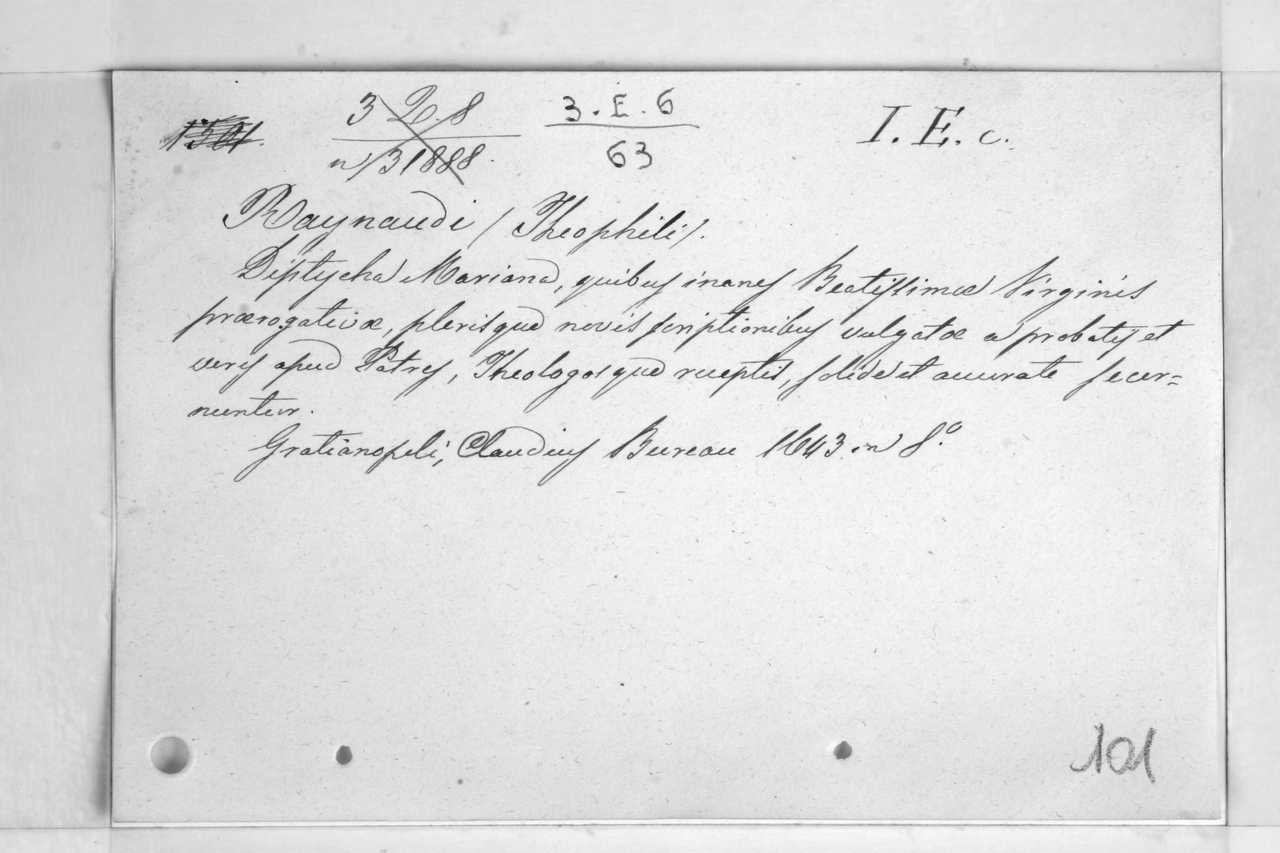 3 . E . 6
I. E. c.
n 31888.
63
Raynaudi (Theophili).
Diptycha Mariana, quibus inanes Beatissimæ Virginis
prærogativæ, plerisque novis scriptionibus vulgatæ a probatis et
veris apud Patres, Theologosque receptis, solide et accurate secer=
nuntur.
Gratianopoli, Claudius Bureau 1643 in 8.º
101